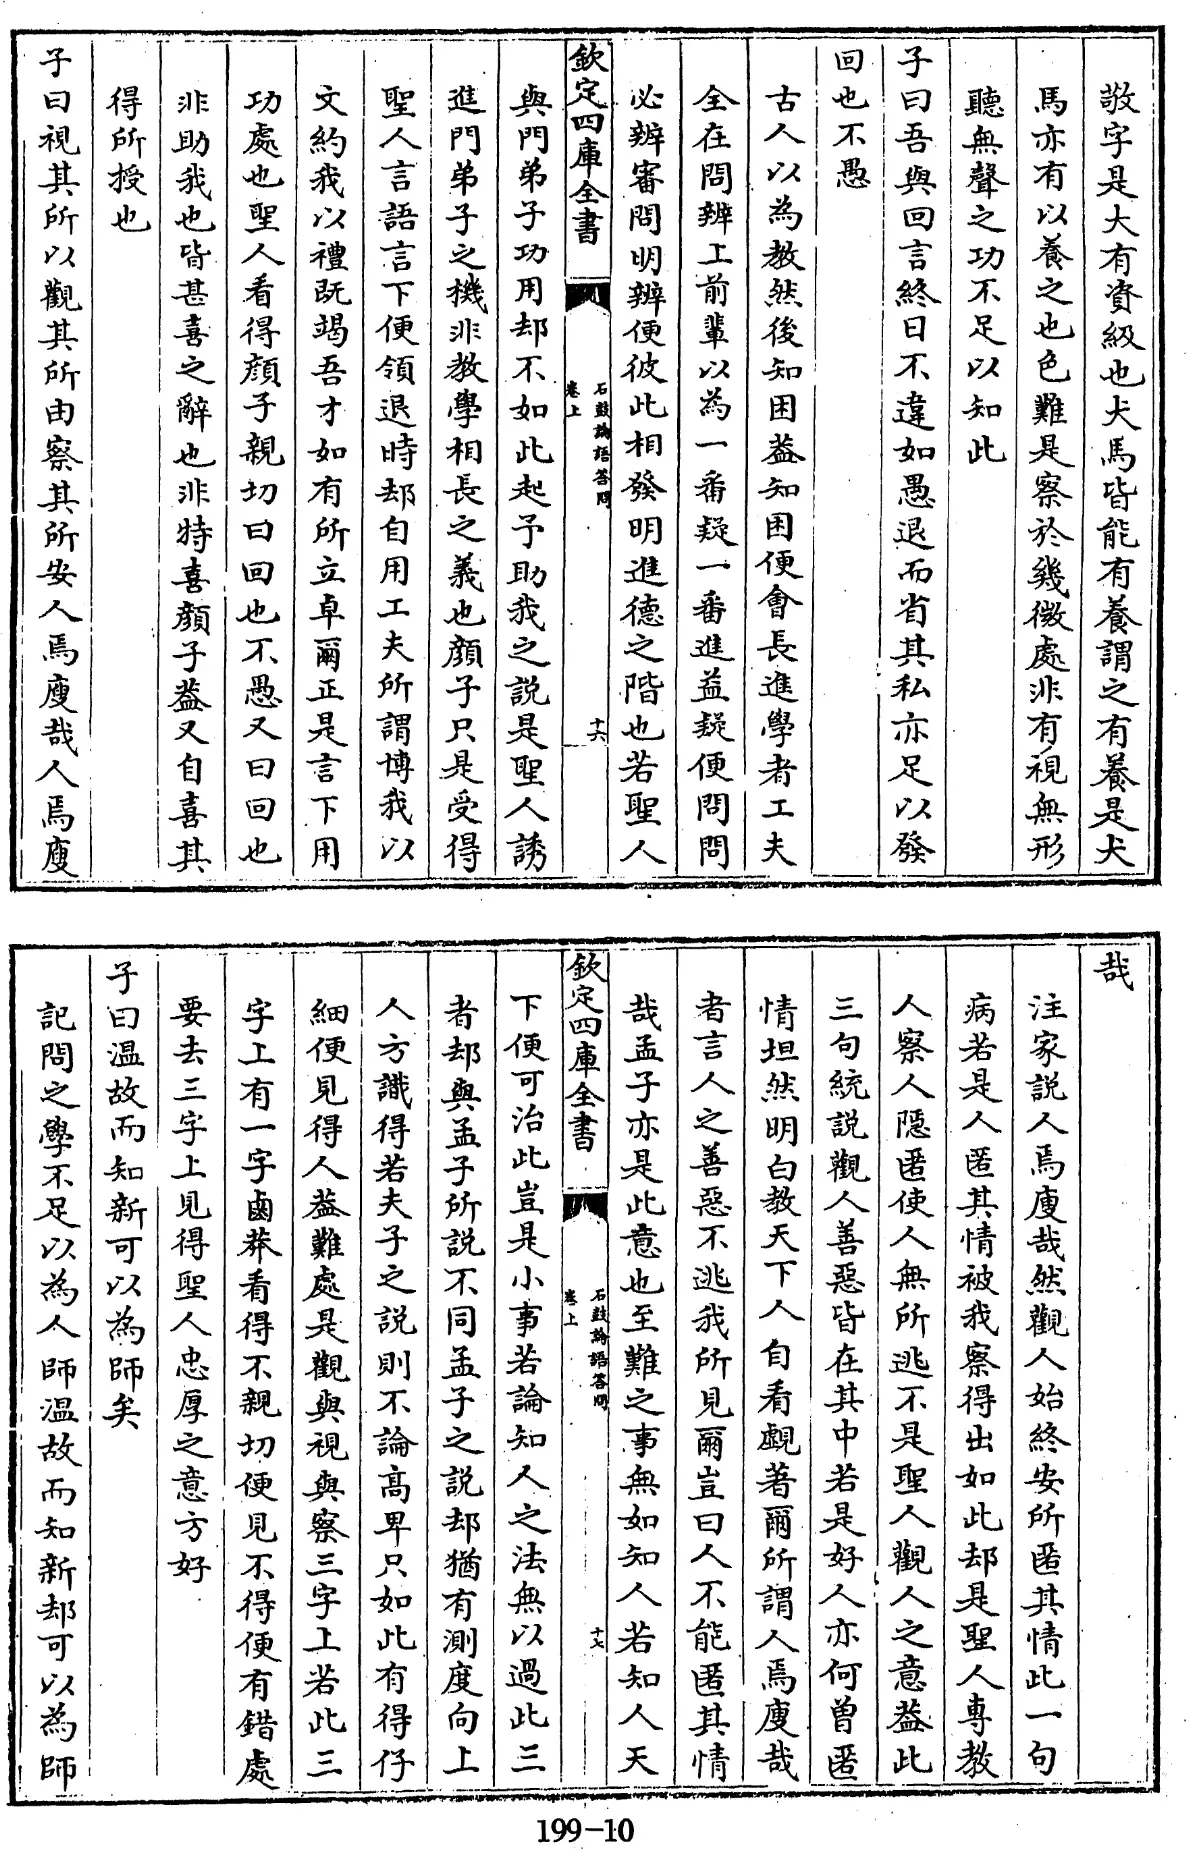 敬字是大有資級也犬馬皆能有養謂之有養是犬
馬亦有以養之也色難是察於幾微處非有視無形
聽無聲之功不足以知此
子曰吾與回言終日不違如愚退而省其私亦足以發
回也不愚
古人以為教然後知困葢知困便會長進學者工夫
全在問辨上前輩以為一番疑一番進益疑便問問
必辨審問明辨便彼此相發明進德之階也若聖人
欽定四庫全書
石鼓論語答問
卷上
十六
與門弟子功用却不如此起予助我之說是聖人誘
進門弟子之機非教學相長之義也顔子只是受得
聖人言語言下便領退時却自用工夫所謂博我以
文約我以禮既竭吾才如有所立卓爾正是言下用
功處也聖人看得顔子親切曰回也不愚又曰回也
非助我也皆甚喜之辭也非特喜顔子葢又自喜其
得所授也
子曰視其所以觀其所由察其所安人焉廋哉人焉廋
哉
注家說人焉廋哉然觀人始終安所匿其情此一句
病若是人匿其情被我察得出如此却是聖人專教
人察人隱匿使人無所逃不是聖人觀人之意葢此
三句統說觀人善惡皆在其中若是好人亦何曾匿
情坦然明白教天下人自看覷著爾所謂人焉廋哉
者言人之善惡不逃我所見爾豈曰人不能匿其情
哉孟子亦是此意也至難之事無如知人若知人天
欽定四庫全書
石鼓論語答問
卷上
十七
下便可治此豈是小事若論知人之法無以過此三
者却與孟子所說不同孟子之說却猶有測度向上
人方識得若夫子之說則不論高卑只如此有得仔
細便見得人葢難處是觀與視與察三字上若此三
字上有一字鹵莽看得不親切便見不得便有錯處
要去三字上見得聖人忠厚之意方好
子曰温故而知新可以為師矣
記問之學不足以為人師温故而知新却可以為師
199-10